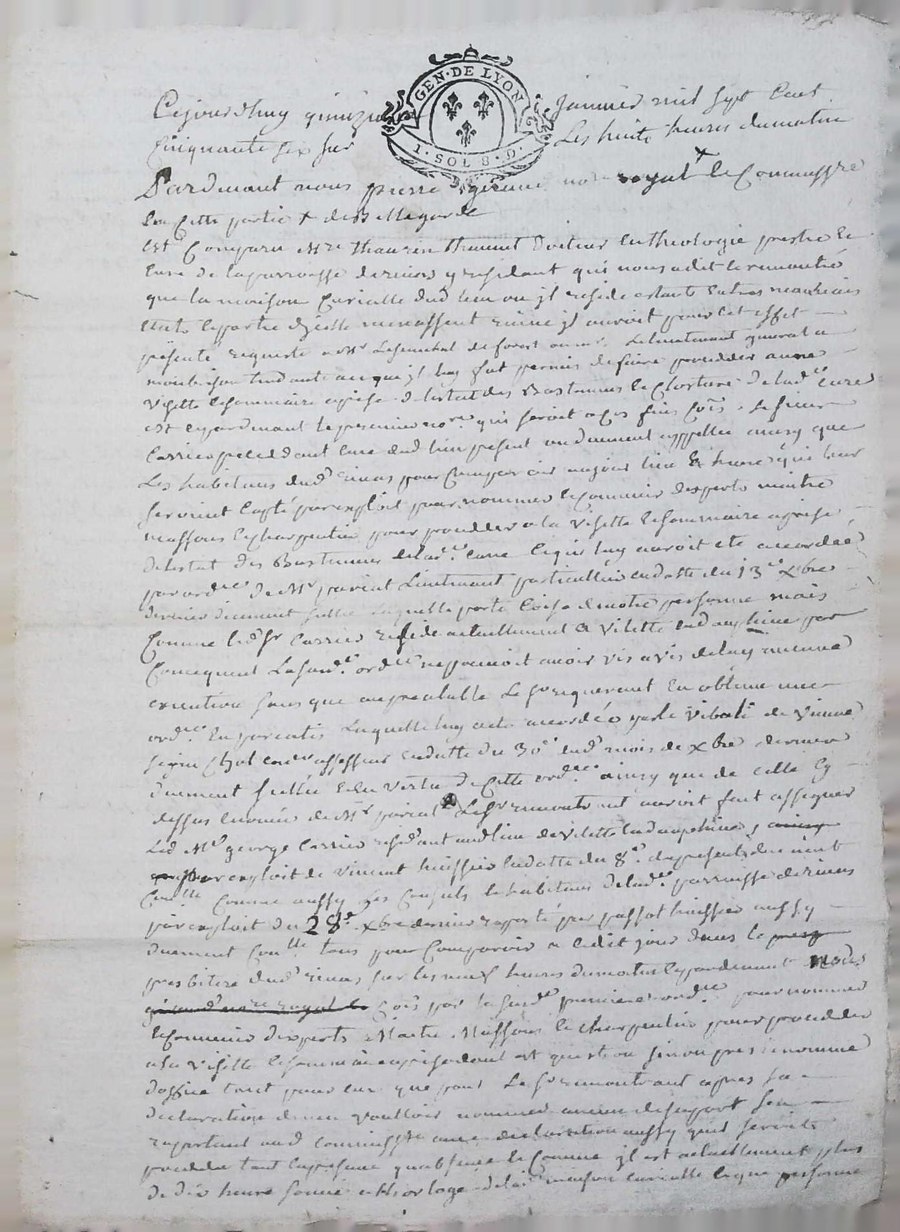 GEN·DE LYON
1·SOL 8·D·
Cejourdhuy quinzie Janvier mil sept Cent
Cinquante six sur Les huit heures du matin
Pardevant nous pierre no.re royal & Commissre
En Cette partie + de Bellegarde
Est Comparu Mre Thomment Docteur En theologie prestre Et
Curé de la parroisse de rivas y residant qui nous a dit & remontré
que la maison Curialle dud lieu ou jl reside estant En tres mauvais
Etat & partie djcelle menassent ruine jl auroit pour Cet effet
présenté requeste a Mr Le senechal de forest ou Mr Le lieutenant general a
montbrison tendante a ce qu jl luy fut permis de faire proceder a une
Visitte & sommaire aprise de lestat des Bastimens & Closture de lad.e Cure
Et Cepardevant le premier no.re qui seroit a Ces fins Coms Le sieur
Carrier precedent Curé dud lieu présent ou duement appellé ainsy que
Les habitans dud rivas pour Comparoir aux jour lieu & heure qui leur
seroient par exploit pour nommer & Convenir dexperts maitre
massons & charpentier pour proceder a la Visitte & sommaire aprise
de lestat des Bastimens de lad.e Cure Ce qui luy auroit été accordée
par ord.ce de Mr Lieutenant particullier en datte du 13.e Xbre
dernier duement laquelle porte de notre personne mais
Comme led Sr Carrier reside actuellement a Vilette En dauphiné par
Consequent La sud.e ord.ce ne pouvoit avoir vis a vis de luy aucune
execution sans que au prealable Le Sr requerent En obtenu une
ord.ce En pareatis Laquelle luy a été accordée par le Vibali de Vienne
signé assesseur En datte du 30.e dud mois de Xbre dernier
duement scellée & En Vertu de Cette ord.ce ainsy que de Celle Cy
dessus Enoncée de Mr Le Sr remontrant auroit fait assigner
Led Mre george Carrier residant aud lieu de Vilette En dauphiné,
par exploit de Vincent huissier En datte du 8.e du present duement
Conllé Comme aussy Les Consuls & habitans de lad.e parroisse de rivas
par exploit du 28.e Xbre dernier raporté par passot huissier aussy
duement Conllé tous pour Comparoir a Cedit jour dans le
presbitere dud rivas sur les neuf heures du matin & pardevant nous
Coms par la sud.e premiere ord.ce pour nommer
& Convenir dexperts Maitre Massons & charpentier pour proceder
a la Visitte & sommaire aprise dont est question sinon pris & nommé
doffice tant pour Eux que pour Le Sr remontrant apres sa
declaration de nen voulloir nommer aucun de sa part sen
raportant aud Commissre avec declaration aussy quil seroit
procedé tant En presence quabsence & Comme jl est actuellement plus
de dix heure sonné a L horloge de lad.e maison Curialle & que personne